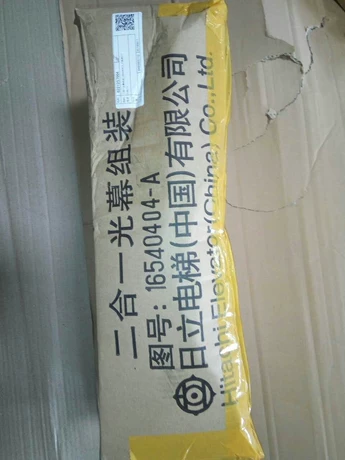 二合一光幕组装
图号：16540404-A
日立电梯(中国)有限公司
Hitachi Elevator(China) Co.,Ltd.